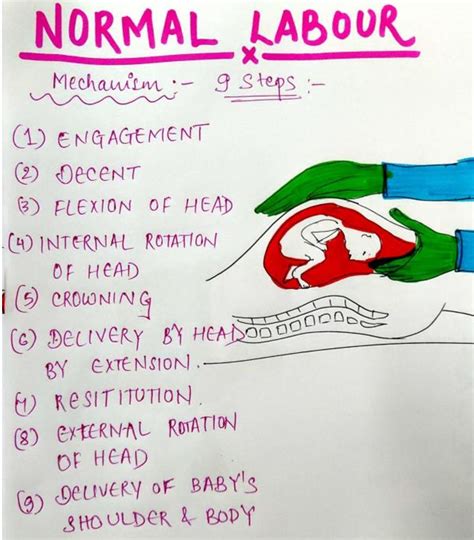 NORMAL LABOUR
x
Mechanism :- 9 Steps :-
(1) ENGAGEMENT
(2) DECENT
(3) FLEXION OF HEAD
(4) INTERNAL ROTATION
OF HEAD
(5) CROWNING
(6) DELIVERY BY HEAD
BY EXTENSION.
(7) RESITITUTION.
(8) EXTERNAL ROTATION
OF HEAD
(9) DELIVERY OF BABY'S
SHOULDER & BODY